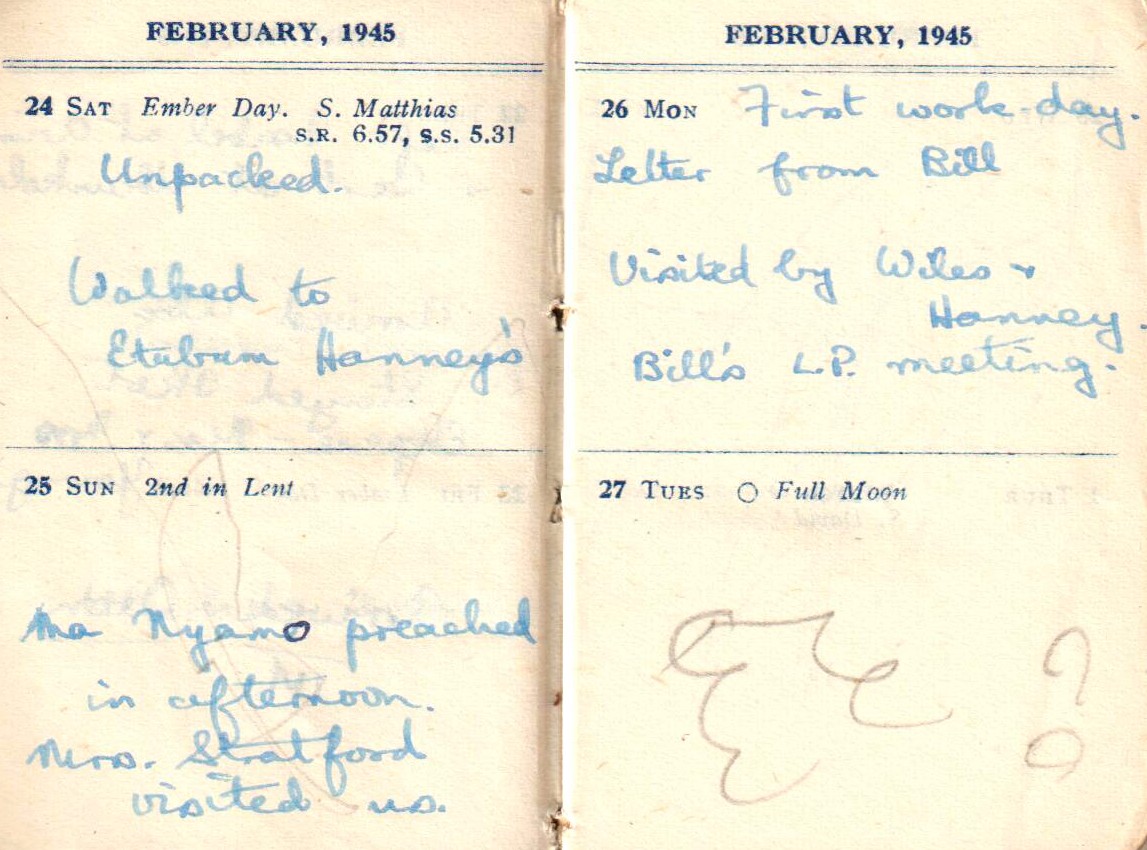 FEBRUARY, 1945
24 SAT Ember Day. S. Matthias
S.R. 6.57, S.S. 5.31
Unpacked.
Walked to
Etubum Hanney's
25 SUN 2nd in Lent
Ma Nyamo preached
in afternoon.
Mrs. Stratford
visited us.
FEBRUARY, 1945
26 MON First work-day.
Letter from Bill
Visited by Wiles &
Hanney.
Bill's L.P. meeting.
27 TUES Full Moon